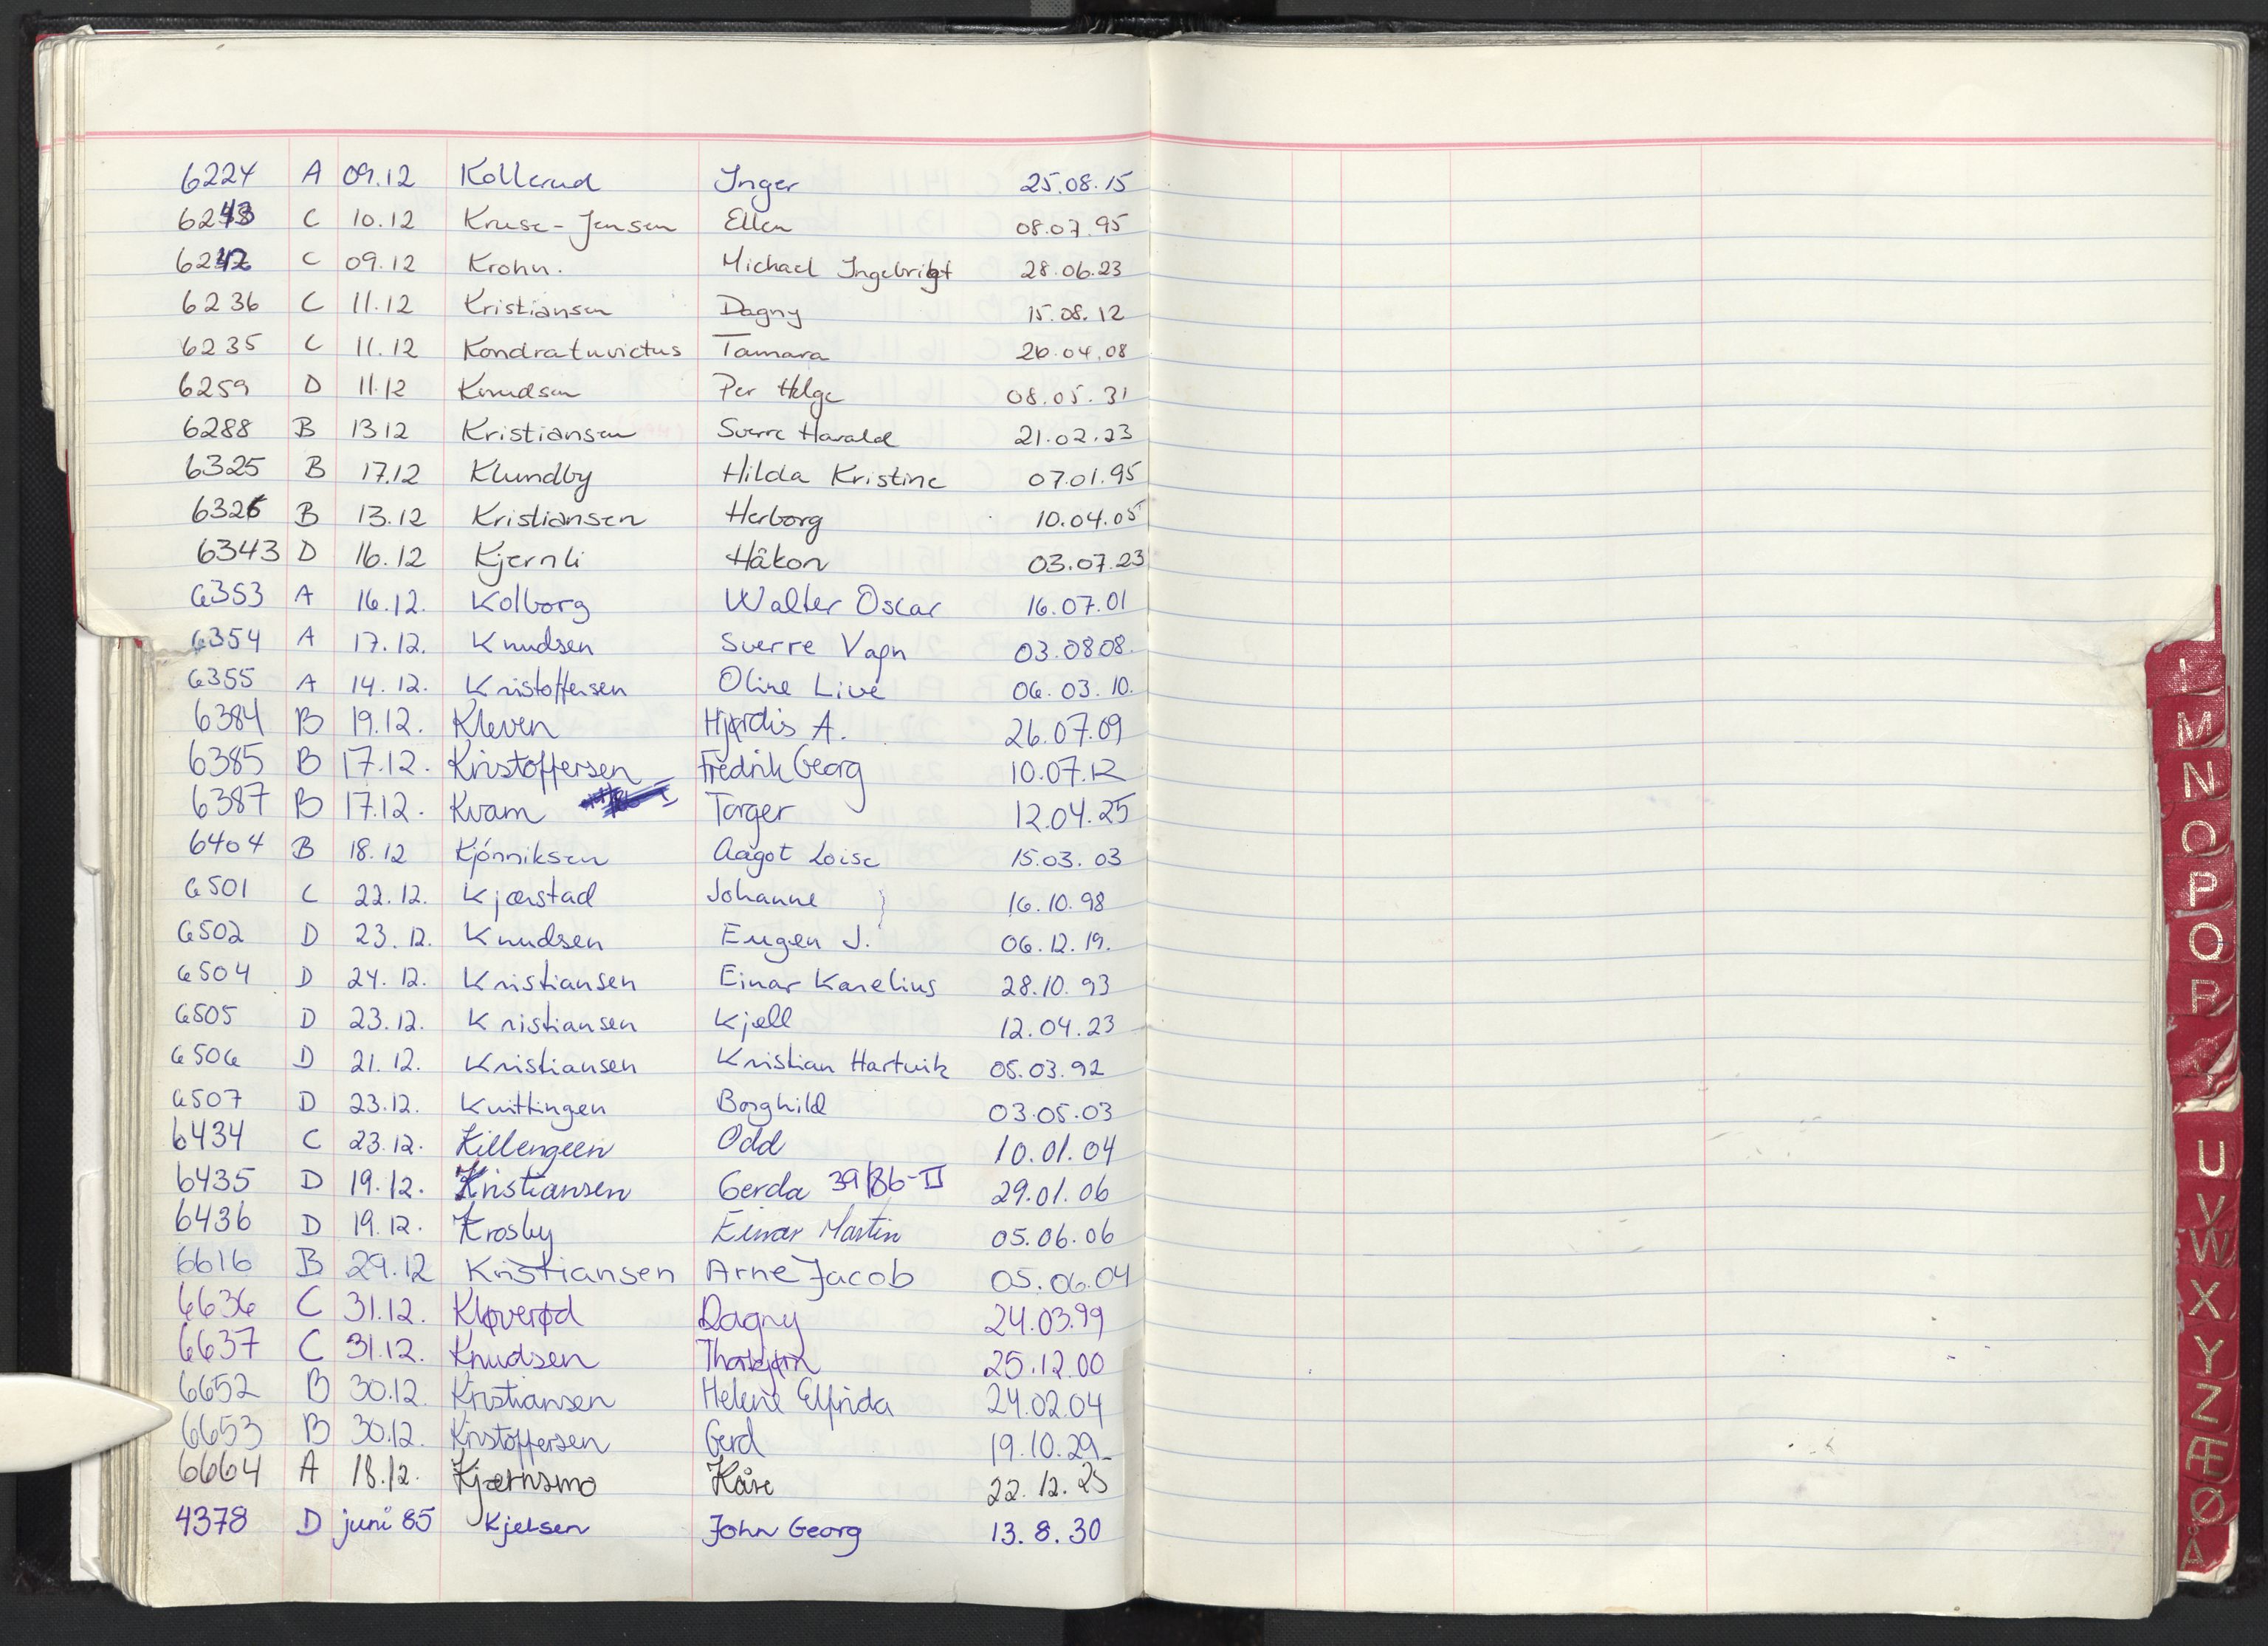 6224 A 09.12 Kollerud Inger 25.08.15
6243 C 10.12 Kruse-Jensen Ellen 08.07.95
6242 C 09.12 Krohn. Michael Ingebrigt 28.06.23
6236 C 11.12 Kristiansen Dagny 15.08.12
6235 C 11.12 Kondratuvictus Tamara 26.04.08
6259 D 11.12 Knudsen Per Helge 08.05.31
6288 B 13 12 Kristiansen Sverre Harald 21.02.23
6325 B 17.12 Klundby Hilda Kristine 07.01.95
6326 B 13.12 Kristiansen Herborg 10.04.05
6343 D 16.12 Kjernli Håkon 03.07.23
6353 A 16.12. Kolborg Walter Oscar 16.07.01
6354 A 17.12. Knudsen Sverre Vagn 03.08 08.
6355 A 14.12. Kristoffersen Oline Live 06.03.10.
6384 B 19.12. Kleven Hjørdis A. 26.07.09
6385 B 17.12. Kristoffersen Fredrik Georg 10.07.12
6387 B 17.12. Kvam Torger 12.04.25
6404 B 18.12 Kjónniksen Aagot Loise 15.03.03
6501 C 22.12. Kjærstad Johanne 16.10.98
6502 D 23.12. Knudsen Eugen J. 06.12.19.
6504 D 24.12. Kristiansen Einar Karelius 28.10.93
6505 D 23.12. Kristiansen Kjell 12.04.23
6506 D 21.12. Kristiansen Kristian Hartvik 05.03.92
6507 D 23.12. Kvittingen Borghild 03.05.03
6434 C 23.12. Killengreen Odd 10.01.04
6435 D 19.12. Kristiansen Gerda 39/86-II 29.01.06
6436 D 19.12. Krosby Einar Martin 05.06.06
6616 B 29.12 Kristiansen Arne Jacob 05.06.04
6636 C 31.12. Kløverød Dagny 24.03.99
6637 C 31.12. Knudsen Thorbjørn 25.12.00
6652 B 30.12. Kristiansen Helene Elfrida 24.02.04
6653 B 30.12. Kristoffersen Gerd 19.10.29
6664 A 18.12. Kjærnsmo Kåre 22.12.25
4378 D juni 85 Kjelsen John Georg 13.8.30
M
N
O
P
Q
R
U
V
W
X
Y
Z
Æ
Ø
Å